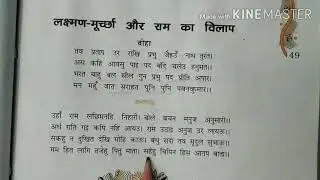 Made with KINEMASTER
लक्ष्मण-मूर्च्छा और राम का विलाप
दोहा
49
तव प्रताप उर राखि प्रभु जैहउँ नाथ तुरंत।
अस कहि आयसु पाइ पद बंदि चलेउ हनुमंत॥
भरत बाहु बल सील गुन प्रभु पद प्रीति अपार।
मन महुँ जात सराहत पुनि पुनि पवनकुमार॥
उहाँ राम लछिमनहि निहारी। बोले बचन मनुज अनुसारी॥
अर्ध राति गइ कपि नहिं आयउ। राम उठाइ अनुज उर लायऊ॥
सकहु न दुखित देखि मोहि काऊ। बंधु सदा तव मृदुल सुभाऊ॥
मम हित लागि तजेहु पितु माता। सहेहु बिपिन हिम आतप बाता॥